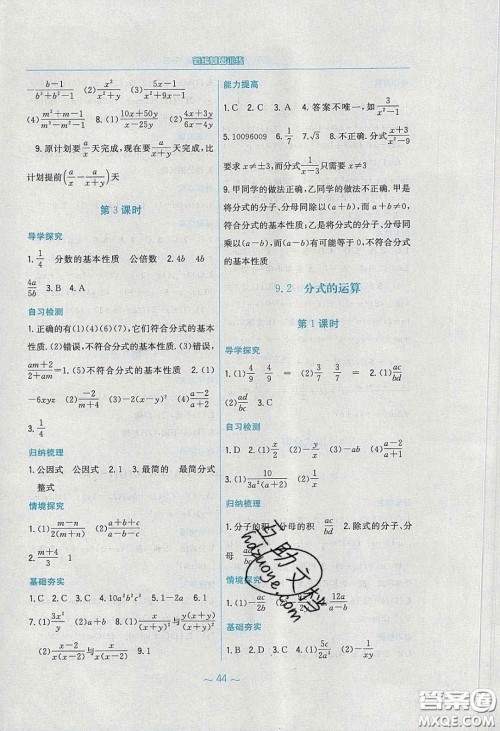 新编基础训练
b−1/(b²+b²−1) (2) x²/(x²+y) (3) (5x−1)/(8x²+9x)
(4) (m²+m−1)/(m³−m²−1) 8.(1) (10x+50y)/(x−25y) (2) (4x+3y)/(6x−4y)
9.原计划要 a/x 天完成,现在要 a/(x+y) 天完成,比
计划提前(a/x − a/(x+y))天
第 3 课时
导学探究
1. 1/4 分数的基本性质 公倍数 2.4b
4a/5b 3.B 4.A
自习检测
1.正确的有(1)(4)(6)(7),它们符合分式的基本
性质.(2)错误,不符合分式的基本性质.(3)错误,
(am+2)/(2+am)=1.(5)不符合分式的基本性质 2.(1)
−6xyz (2) −2/(m+4) (3) −2−m (4) (a−2)/(a+2)
3. 1/4
归纳梳理
1.公因式 公因式 2.1 3.最简的 最简分式
整式
情境探究
1.(1) (m−n)/(2(m+n)) (2) (a+b+c)/(a−b+c)
2. (m+4)/3 1
基础夯实
1.B 2.C 3.C 4.10a²b²c² 5.1−2a 6.−1
7.(1) 3x²/y (2)a+b 8.(1) x/(x(x−2)) 与 (x+3)/(x(x−2))
(2) x/((x+y)(x−y)) 与 y(x+y)/((x+y)(x−y)) 9.1
能力提高
1.C 2.C 3.A 4.答案不唯一,如 3/(x²−1)
5.10096009 6. 1/7 7.√3 8.不正确.分式 (x+3)/(x²−9)
要求 x≠±3,而分式 1/(x−3) 只需要 x≠3
9.甲同学的做法正确,乙同学的做法不正确.甲是
将分式的分子、分母同除以(a+b),而 a+b≠0,符
合分式的基本性质;乙是将分式的分子、分母同
乘以(a−b),而(a−b)有可能等于 0,不符合分式
的基本性质
9.2 分式的运算
第 1 课时
导学探究
1.(1) 4/9 = 4/9 (2) 3/7 3/7 = 2.(1) ac/bd
(2) ad/bc 3.C
自习检测
1.D 2.(1) −2/m (2) −y/x (3) −x (4) (a−2)/(a+1)
3.(1) 10/(3a²(a+2)) (2)
归纳梳理
1.分子的积 分母的积 ac/bd 2.除式的分子、分
母 ad/bc
情境探究
1.(1) −ac/2b (2) 12a/(a−b)
基础夯实
1.B 2.D 3.A 4.(1) 5c/2a² (2) −1/xy
～ 44 ～
互助文档
hdzuoye.com
答案圈
MXQE.COM